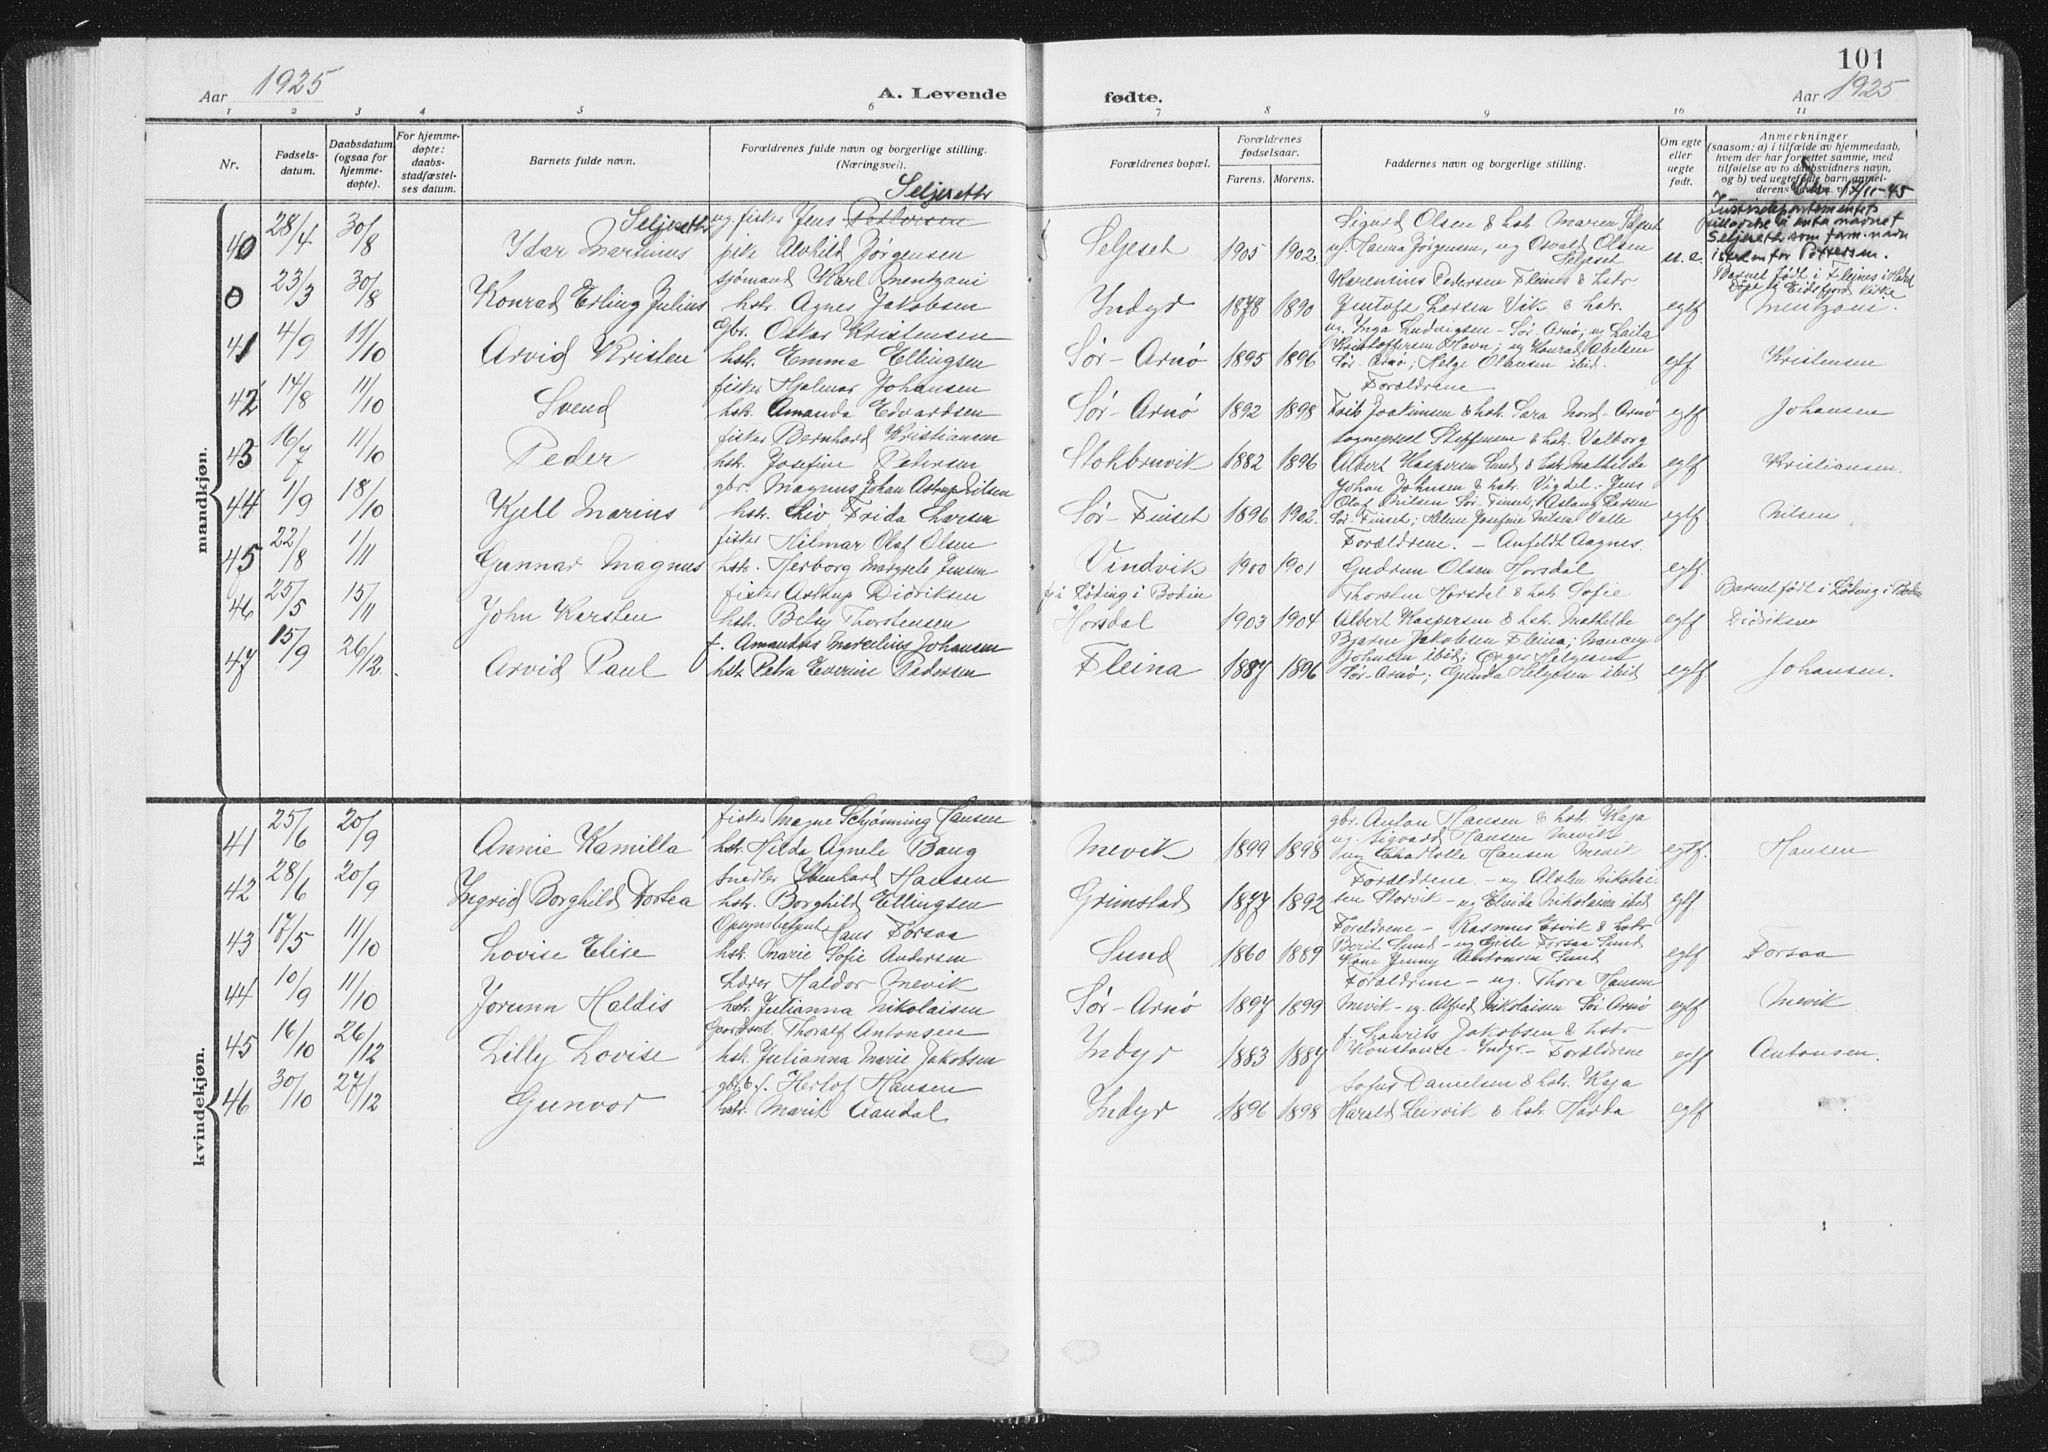 101
Aar 1925
A. Levende fødte.
Aar 1925
1 2 3 4 5 6 7 8 9 10 11
Nr.
Fødsels-
datum.
Daabsdatum
(ogsaa for
hjemme-
døpte).
For hjemme-
døpte:
daabs-
stadfæstel-
ses datum.
Barnets fulde navn.
Forældrenes fulde navn og borgerlige stilling.
(Næringsvei).
Forældrenes bopæl.
Forældrenes
fødselsaar.
Farens. Morens.
Faddernes navn og borgerlige stilling.
Om egte
eller
uegte
født.
Anmerkninger
(saasom: a) i tilfælde av hjemmedaab,
hvem der har forrettet samme, med
tilføielse av to daabsvidners navn,
og b) ved uegtefødte barn anmel-
derens
mandkjøn.
Seljeseth
40 28/4 30/8 Seljeseth
Idar Marinius
ug. fisker Jens Pettersen
pike Alvhild Jørgensen
Seljeset 1905 1902
Sigurd Olsen & hst. Maren Seljeset
uf. Hanna Jørgensen, ug Osvald Olsen
Seljeset
u. e.
17/11-45
Justisdepartementets
tillatelse til anta navnet
Seljeseth som fam.navn
istedenfor Pettersen.
0 23/3 30/8 Konrad Erling Julius
sjømand Karl Mentzoni
hst. Agnes Jakobsen
Indyr 1878 1890
Karensius Pedersen Fleina & hstr.
Jentoft Larsen Vik & hstr.
egtf
Barnet født i Flejnes i Hadsel
Døpt i Eidsfjord kirke
Mentzoni.
41 4/9 11/10 Arvid Kristen
gbr. Oskar Kristensen
hst. Emma Ellingsen
Sør-Arnø 1895 1896
ug. Inga Ludvigsen - Sør-Arnø; ug Laila
Kristoffersen Havn; ug Konrad Abelsen
Sør-Arnø; Helge Olausen ibid.
egtf Kristensen
42 14/8 11/10 Svend
fisker Hjalmar Johansen
hst. Amanda Edvardsen
Sør-Arnø 1892 1898
Forældrene
Frits Joakimsen & hst. Sara Nord-Arnø
egtf Johansen
43 16/7 11/10 Peder
fisker Bernhard Kristiansen
hst. Josefine Petersen
Stokbruvik 1882 1896
sogneprest Steffensen & hst. Valborg
Albert Kaspersen Sund & hst. Mathilde
egtf Kristiansen.
44 1/9 18/10 Kjell Marius
gbr. Magnus Johan Astrup Nilsen
hst. Liv Frida Larsen
Sør-Finset 1896 1902.
Johan Johnsen & hst. Vigdel. - Jens
Olaf Nilsen Sør-Finset; Aslaug Larsen
Sør-Finset; Helene Josefine Nilsen Valle
egtf Nilsen
45 22/8 1/11 Gunnar Magnus
fisker Hilmar Olaf Olsen
hst. Herborg Margrete Jensen
Vindvik 1900 1901
Forældrene. - Anfeldt Aagnes.
Gudrun Olsen Horsdal
egtf.
46 25/5 15/11 John Karsten
fisker Astrup Didriksen
hst. Betsy Thorstensen
f i Løding i Bodin
Horsdal 1903 1904
Thorsten Horsdal & hst Sofie
Albert Kaspersen & hst. Mathilde
egtf
Barnet født i Løding i Bodin
Didriksen
47 15/9 26/12. Arvid Paul
f. Amandus Marcelius Johansen
hst. Petra Everine Pedersen
Fleina 1887 1896
Bjarne Jakobsen Fleina; Nancy
Johnsen ibid;Ørger Helgesen
Sør-Arnø; Gunda Helgesen ibid
egtf Johansen.
kvindekjøn.
41 25/6 20/9 Annie Kamilla
fisker Magne Schjønning Hansen
hst. Hilda Agnele Bang
Mevik 1899 1898
gbr. Anton Hansen & hst. Kaja
ug. Sigvard Hansen Mevik
ug Charlotte Hansen Mevik
egtf. Hansen
42 28/6 20/9 Ingrid Borghild Dortea
Snedker Ebenhard Hansen
hst. Borghild Ellingsen
Grimstad 1877 1892
Forældrene. - ug. Alslen Nikolai-
sen Storvik - ug Elnda Nikolaisen ibid
egtf.
43 17/5 11/10 Lovise Elise
Opsynsbetjent Hans Forsaa
hst. Marie Sofie Andersen
Sund 1860 1889
Foreldrene - Rasmus Esvik & hstr
Berit Sund - ug Gitle Forsaa Sund
Kone Jenny Antonsen Sund
egtf Forsaa
44 10/9 11/10 Jorunn Haldis
Lærer Haldor Mevik
hst. Julianna Nikolaisen
Sør-Arnø 1897 1899
Forældrene - ug. Thora Hansen
Mevik - ug. Alfred Nikolaisen Sør-Arnø
egtf Mevik
45 16/10 26/12 Lilly Lovise
Thoralf Antonsen
hst. Julianna Marie Jakobsen
Indyr 1883 1887
f. Laurits Jakobsen & hstr
Konstance - Indyr - Forældrene
egtf Antonsen.
46 30/10 27/12 Gunvor
gbr. & f. Herlof Hansen
hstr. Marit Aandal
Indyr 1896 1898
Sofus Danielsen & hst. Kaja
Harald Leirvik & hst. Harda
egtf